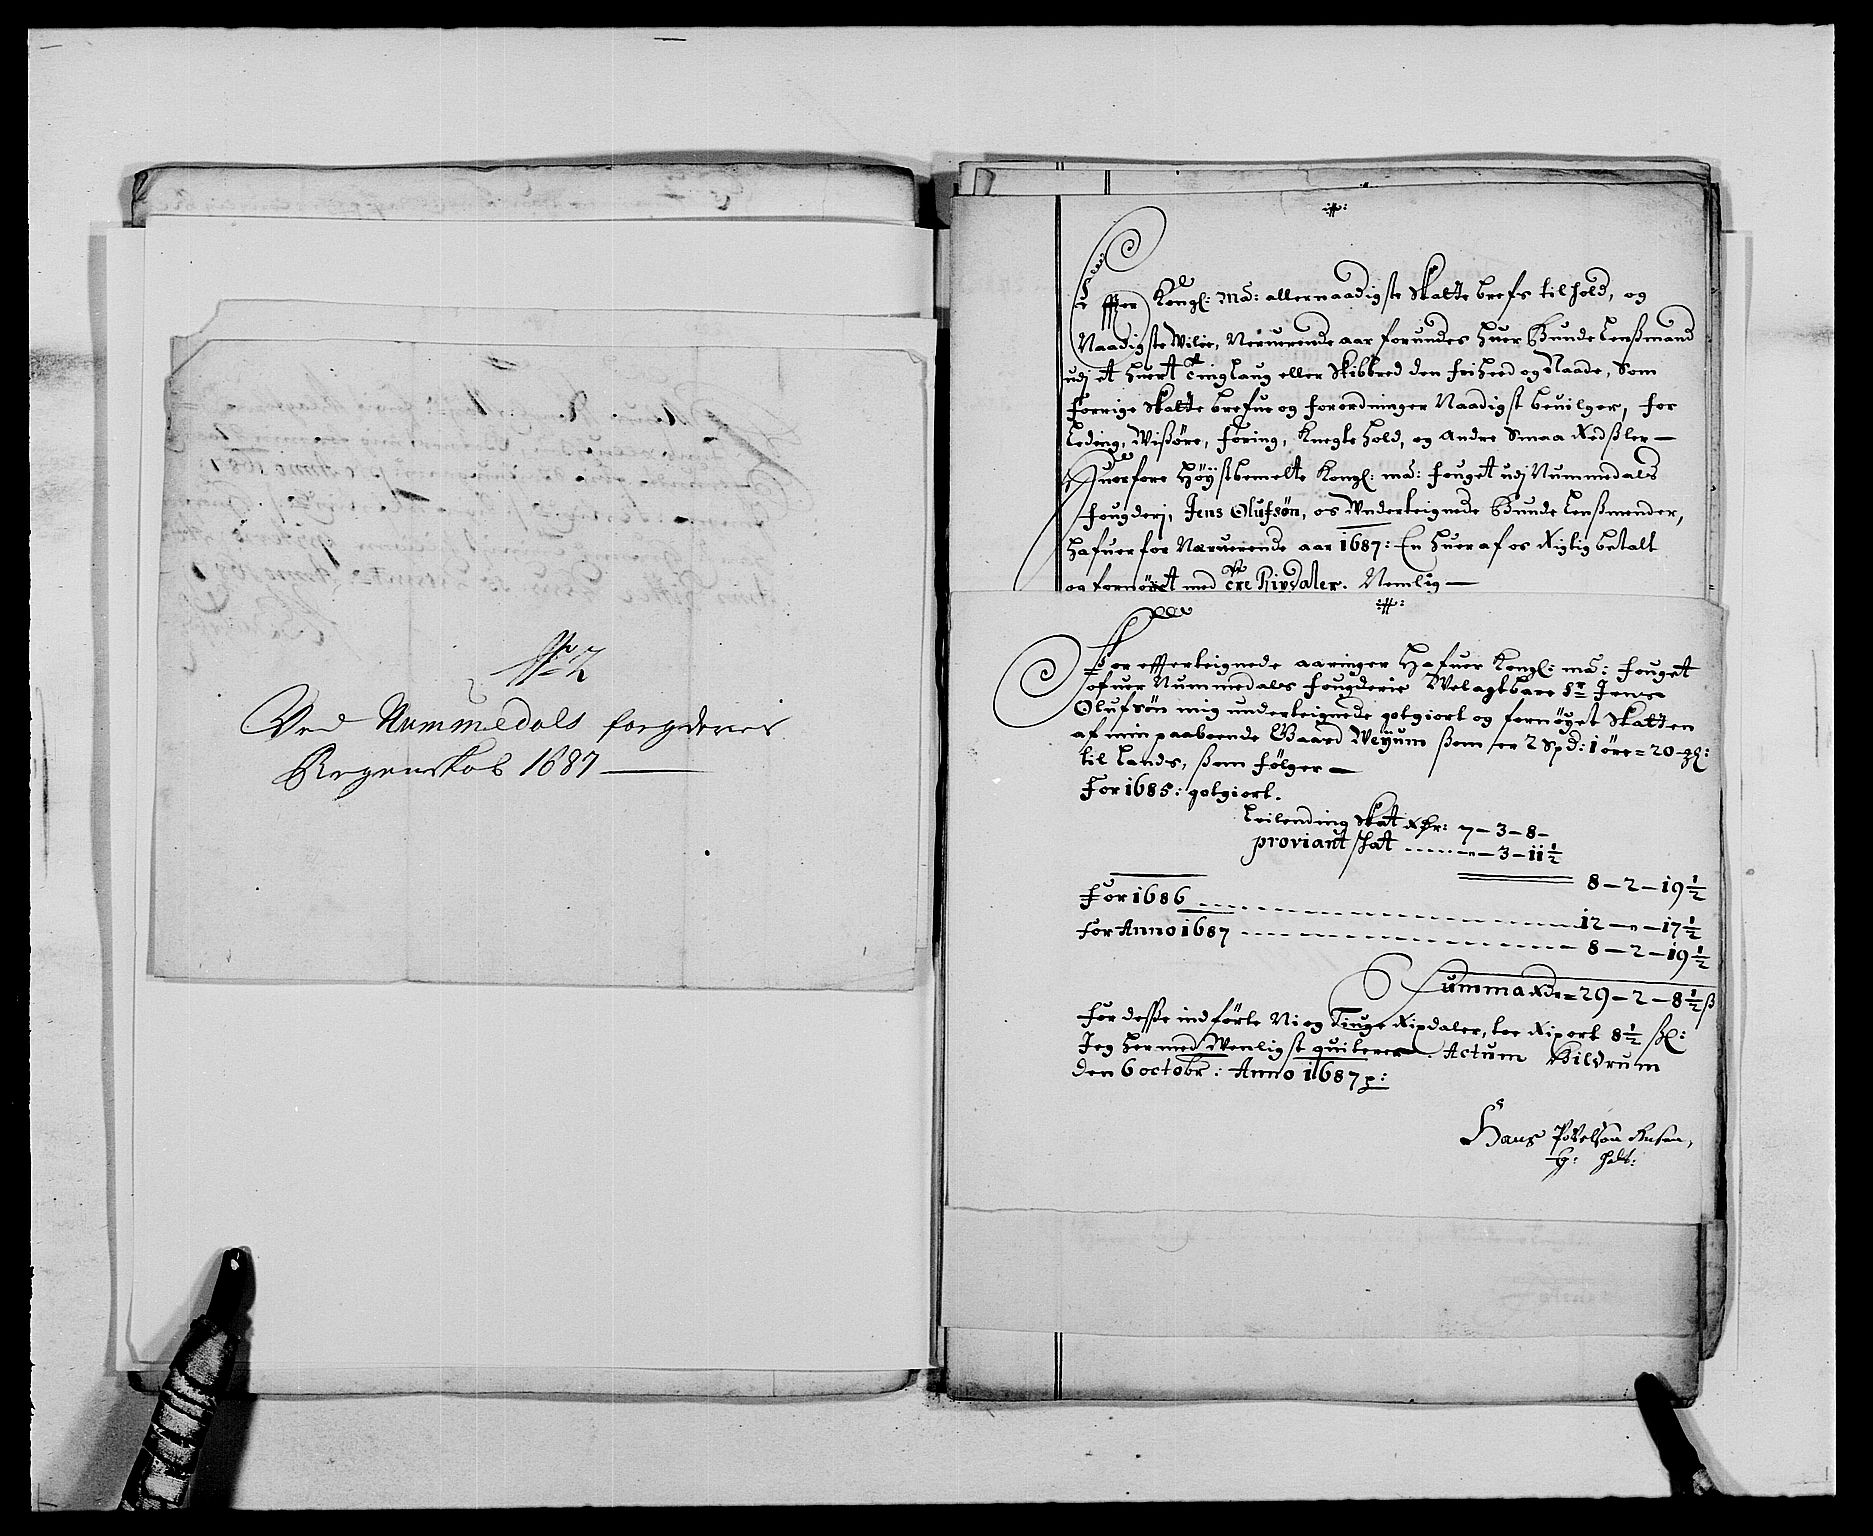 Ved Nummedals fogderies
Regenskab 1687
Effter Kongl: Ma: allernaadigste Skatte brefs tilhold, og
Naadigste Wilie, Nerverende aar forundes huer Bunde Lenßmand
udj et huert Tinglaug eller Skibbred den friheed og Naade, Som
forrige Skatte brefue og forordninger Naadigst beuilger, for
Leding, Wißøre, Føring, Knegte hold, og andre Smaa Redßler
Huorfore Høystbemelte Kongl: Ma: fouget udj Nummedals
fougderj, Jens Olufsøn, os Underteignede Bunde Lenßmender,
Hafuer for Neruerende aar 1687: En huer af os Rigtig betalt
og fornøiet med Tre Rixdaler. Nemlig
For effterteignede aaringer Hafuer Kongl: Ma: fouget
ofuer Nummedals fougderie Welagtbare Sr Jens
Olufsøn mig underteignede gotgiort og fornøyet Skatten
af min paaboende Gaard Weyum ßom er 2 Spd: 1 øre = 20 gl:
til Lands, ßom følger
For 1685: gotgiort.
Leilending Skat Rdr: 7 - 3 - 8 -
proviant skat ..... - " - 3 - 11 1/2
8 - 2 - 19 1/2
For 1686 12 - " - 17 1/2
for Anno 1687 8 - 2 - 19 1/2
Summa Rdr = 29 - 2 - 8 1/2 ß
for desße indførte Ni og Tiuge Rixdaler, toe Rixort 8 1/2 ßl:
Jeg hermed Wenligst quiterer. Actum Bildrum
den 6 octobr: Anno 1687 p:
Hans Povelsøn